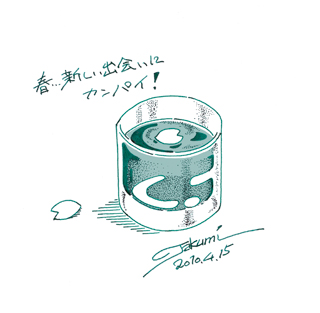 春…新しい出会いに
カンパイ!
Takumi
2010.4.15